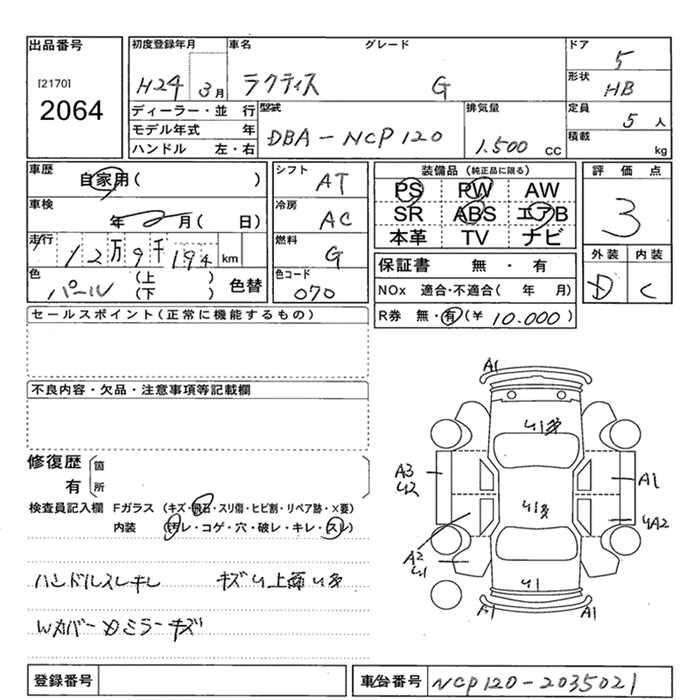 出品番号
[2170]
2064
初度登録年月
H24 3月
車名
ラクティス
グレード
G
ドア
5
形状
HB
ディーラー・並 行
モデル年式 年
ハンドル 左・右
型式
DBA-NCP120
排気量
1.500 CC
定員
5 人
積載
kg
車歴
自家用( )
車検
年 2 月( 日)
走行
12万9千194 km
色
パール (上 下) 色替
シフト
AT
冷房
AC
燃料
G
色コード
070
装備品(純正品に限る)
PS PW AW
SR ABS エアB
本革 TV ナビ
保証書 無・有
NOx 適合・不適合( 年 月)
R券 無・有(¥ 10.000)
評価点
3
外装 内装
D C
セールスポイント(正常に機能するもの)
不良内容・欠品・注意事項等記載欄
修復歴 箇
有 所
検査員記入欄 Fガラス (キズ・飛石・スリ傷・ヒビ割・リペア跡・×要)
内装 (汚レ・コゲ・穴・破レ・キレ・スレ)
ハンドルスレキレ キズ
Wカバー ミラーキズ
A1
A3
A1
A2
A2
A1 A1
登録番号
車台番号 NCP120-2035021